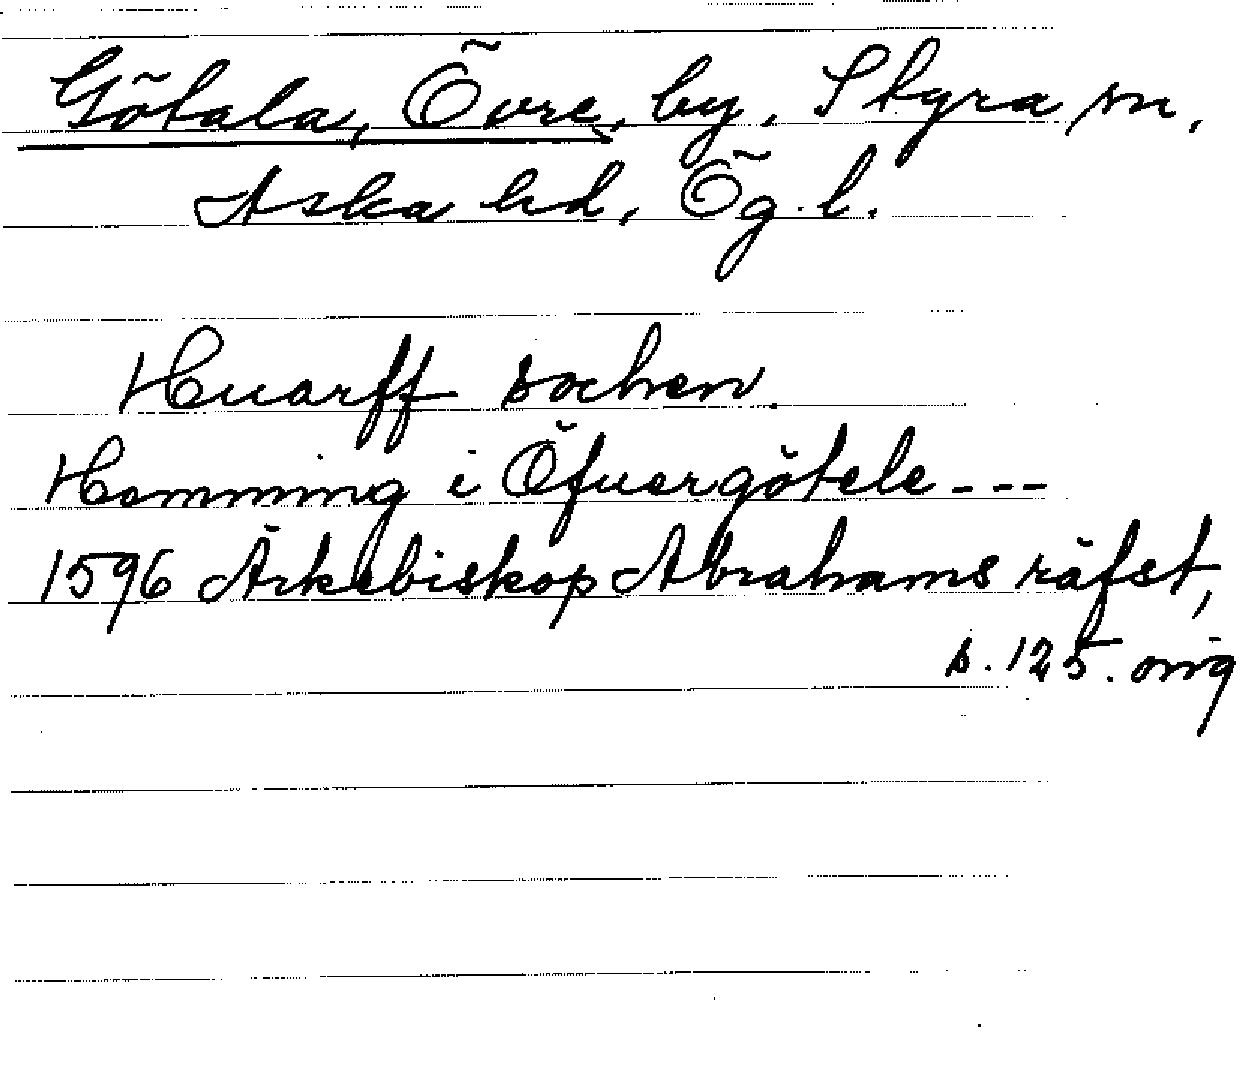 Götala, Övre, by, Styra sn,
Aska hd, Ög. l.
Huarff sochen
Hemming i Öfuergötele ---
1596 Ärkebiskop Abrahams räfst,
s. 125. orig